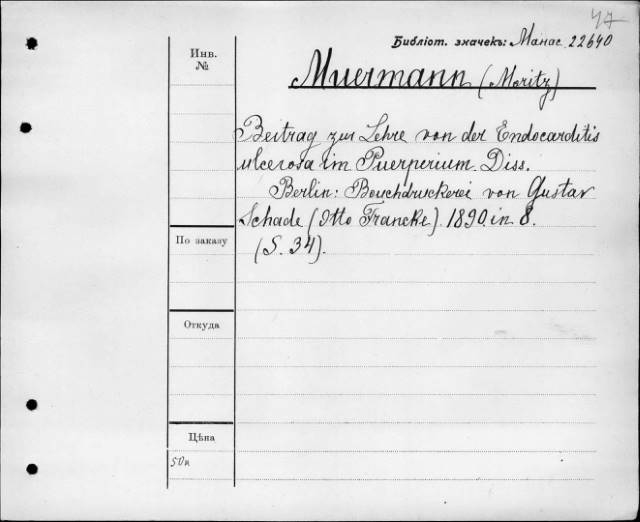 47
Библіот. значекъ: Манас 22640
Инв. №
Muermann (Moritz)
Beitrag zur Lehre von der Endocarditis
ulcerosa im Puerperium. Diss.
Berlin: Buchdruckerei von Gustav
Schade (Otto Francke). 1890. in 8.
(S. 34).
По заказу
Откуда
Цѣна
50к